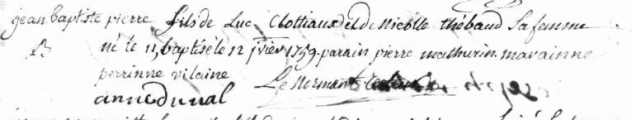 jean baptiste pierre fils de Luc Clottiaux et de Nicolle thébaud sa femme
B né le 11, baptisé le 12 jvier 1759. parain pierre mathurin. maraine
perrinne vilaine
Le Normant
anne duval